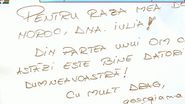 PENTRU RAZA MEA DE
NOROC, DNA. IULIA!
DIN PARTEA UNUI OM C
ASTĂZI ESTE BINE DATORI
DUMNEAVOASTRĂ!
CU MULT DRAG,
georgiana